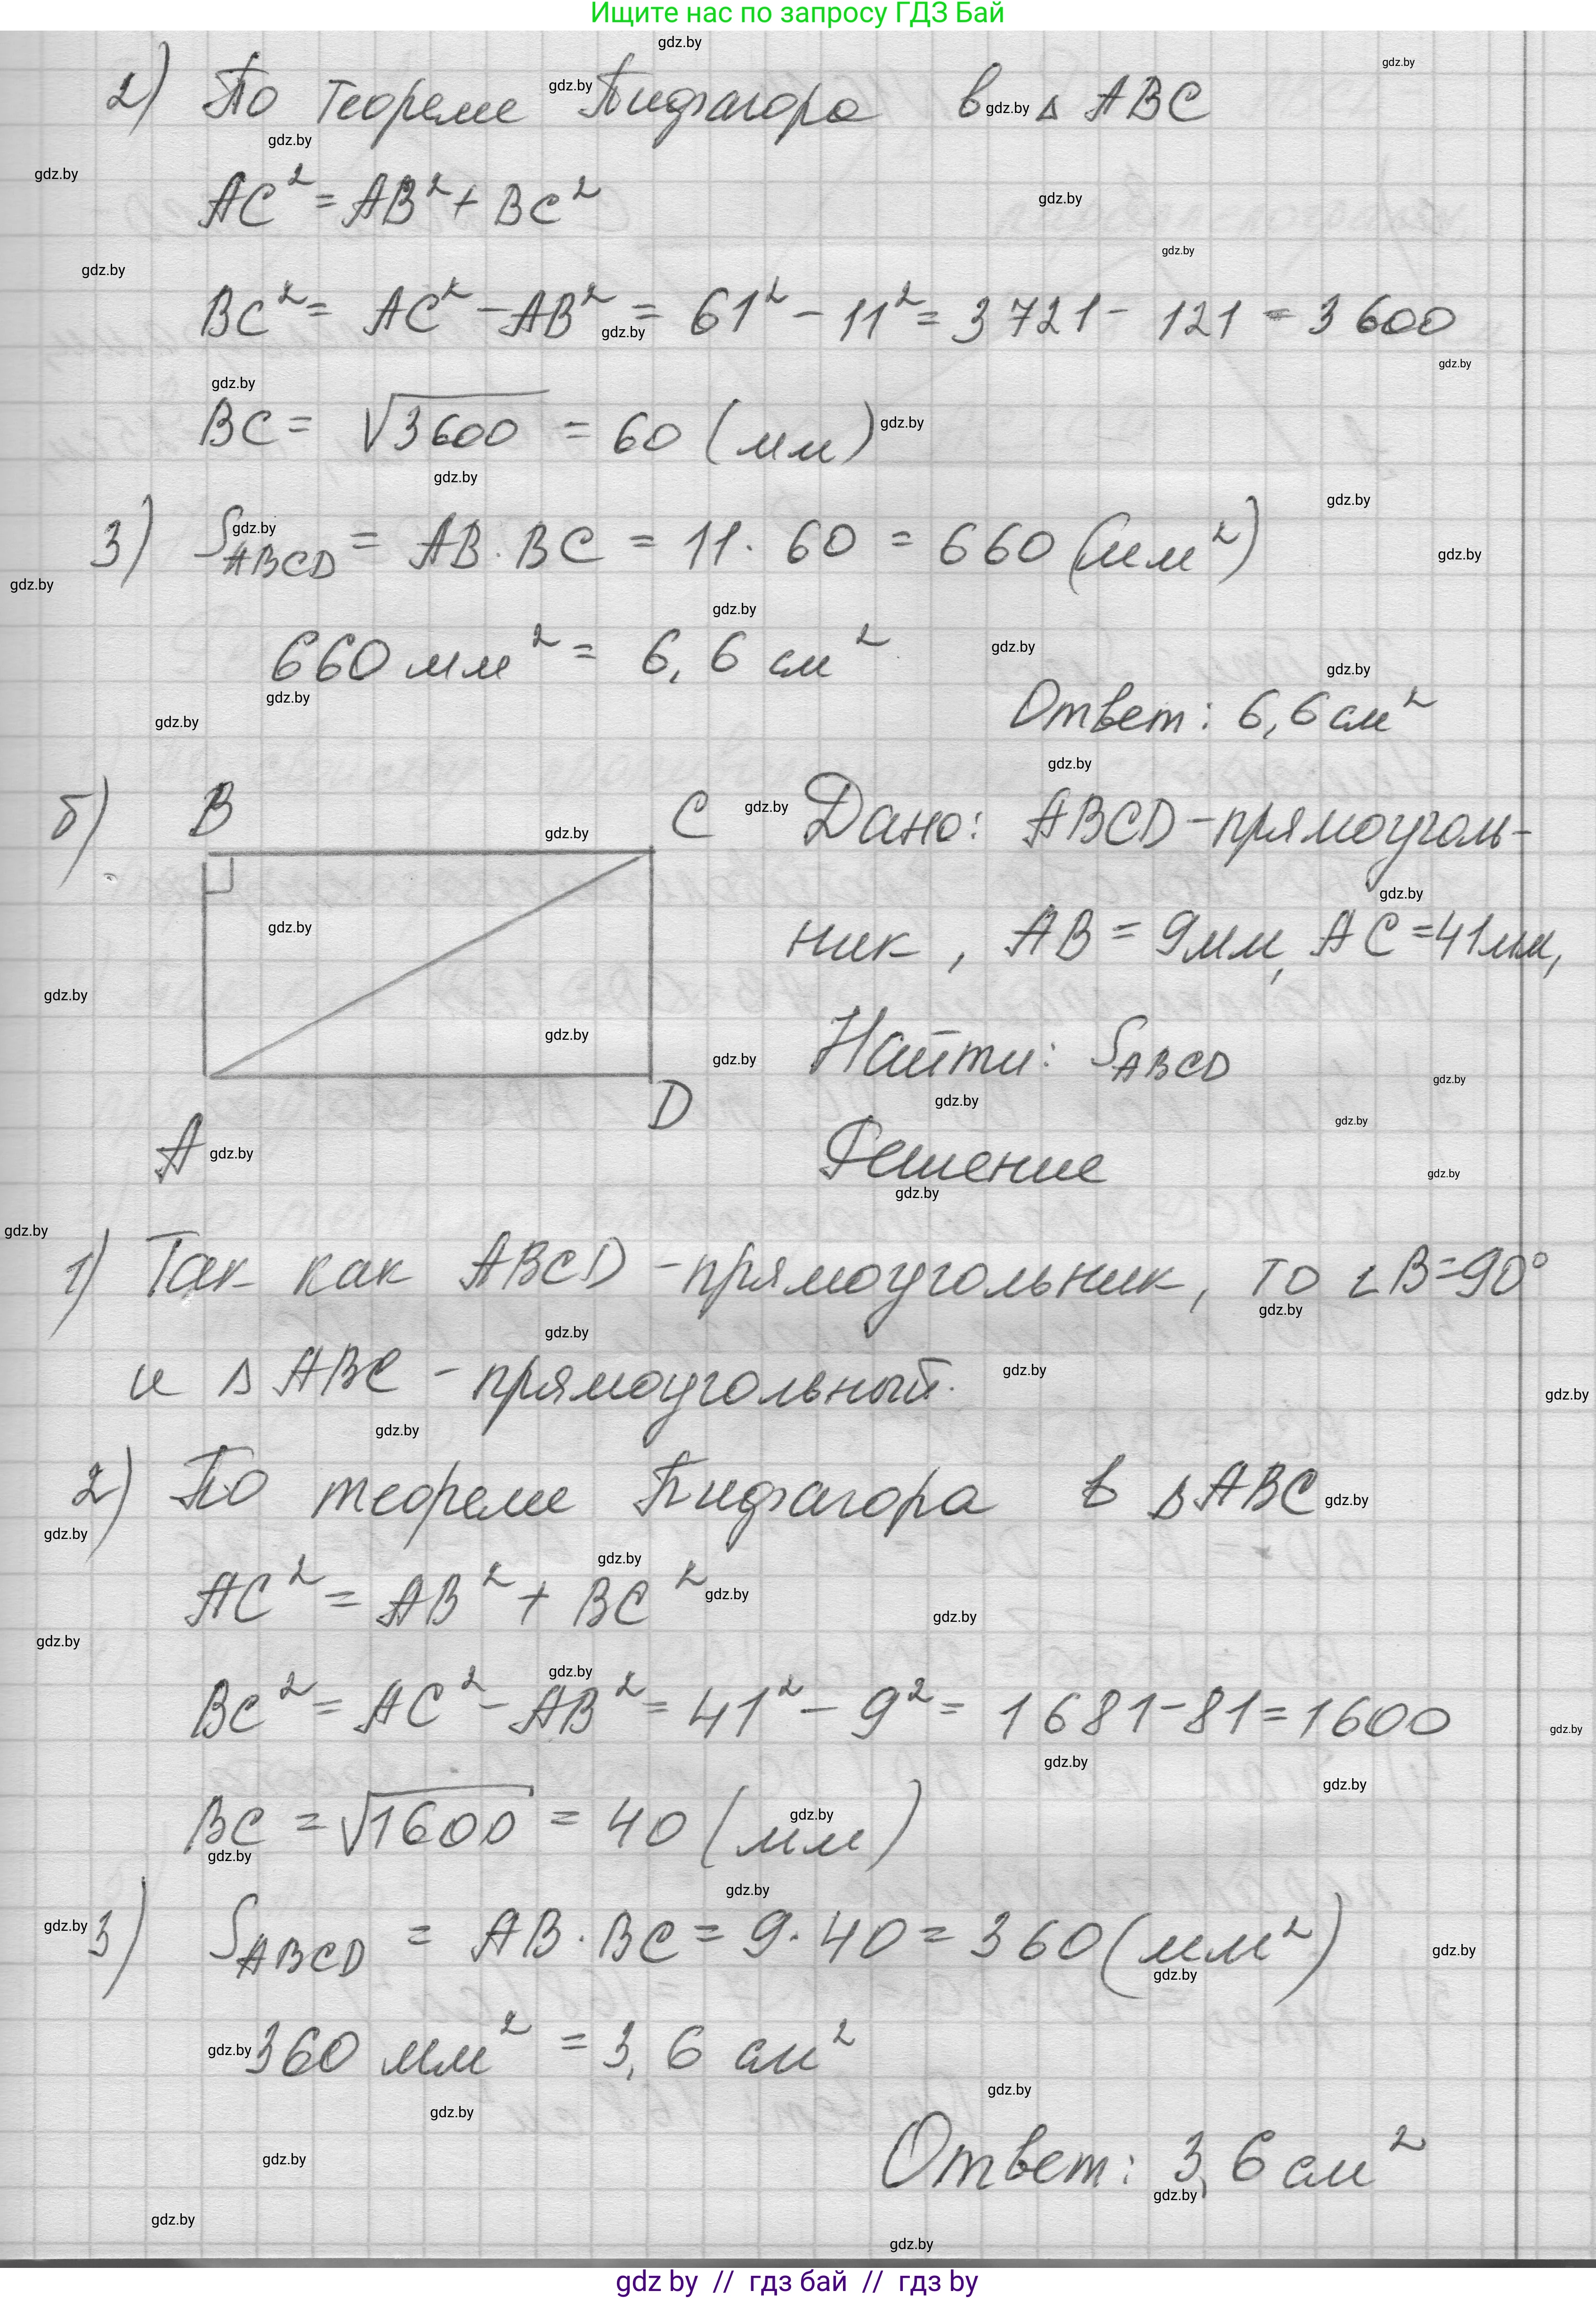 Ищите нас по запросу ГДЗ Бай
2) По теореме Пифагора в △ ABC
AC² = AB² + BC²
BC² = AC² - AB² = 61² - 11² = 3 721 - 121 = 3 600
BC = √3600 = 60 (мм)
3) S_ABCD = AB · BC = 11 · 60 = 660 (мм²)
660 мм² = 6,6 см²
Ответ: 6,6 см²
б) B C Дано: ABCD - прямоуголь-
ник, AB = 9мм, AC = 41мм,
Найти: S_ABCD
A D
Решение
1) Так как ABCD - прямоугольник, то ∠B = 90°
и △ ABC - прямоугольный.
2) По теореме Пифагора в △ABC
AC² = AB² + BC²
BC² = AC² - AB² = 41² - 9² = 1681 - 81 = 1600
BC = √1600 = 40 (мм)
3) S_ABCD = AB · BC = 9 · 40 = 360 (мм²)
360 мм² = 3,6 см²
Ответ: 3,6 см²
gdz by // гдз бай // гдз by